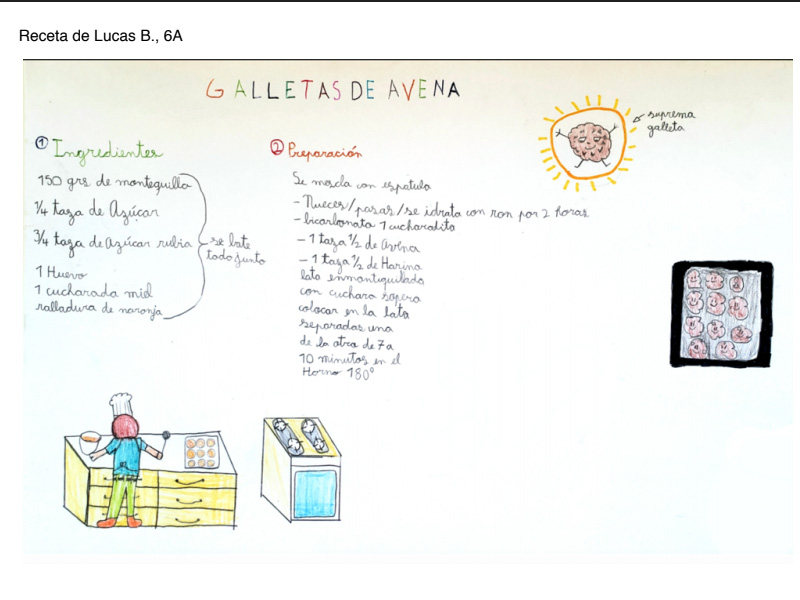 Receta de Lucas B., 6A
GALLETAS DE AVENA
suprema
galleta
① Ingredientes
150 grs de mantequilla
1/4 taza de Azúcar
3/4 taza de Azúcar rubia
1 Huevo
1 cucharada miel
ralladura de naranja
se bate
todo junto
② Preparación
Se mezcla con espatula
- Nueces/pasas/se idrata con ron por 2 horas
- bicarbonato 1 cucharadita
- 1 taza 1/2 de Avena
- 1 taza 1/2 de Harina
lata enmantequillada
con cuchara sopera
colocar en la lata
separadas una
de la otra de 7 a
10 minutos en el
Horno 180°